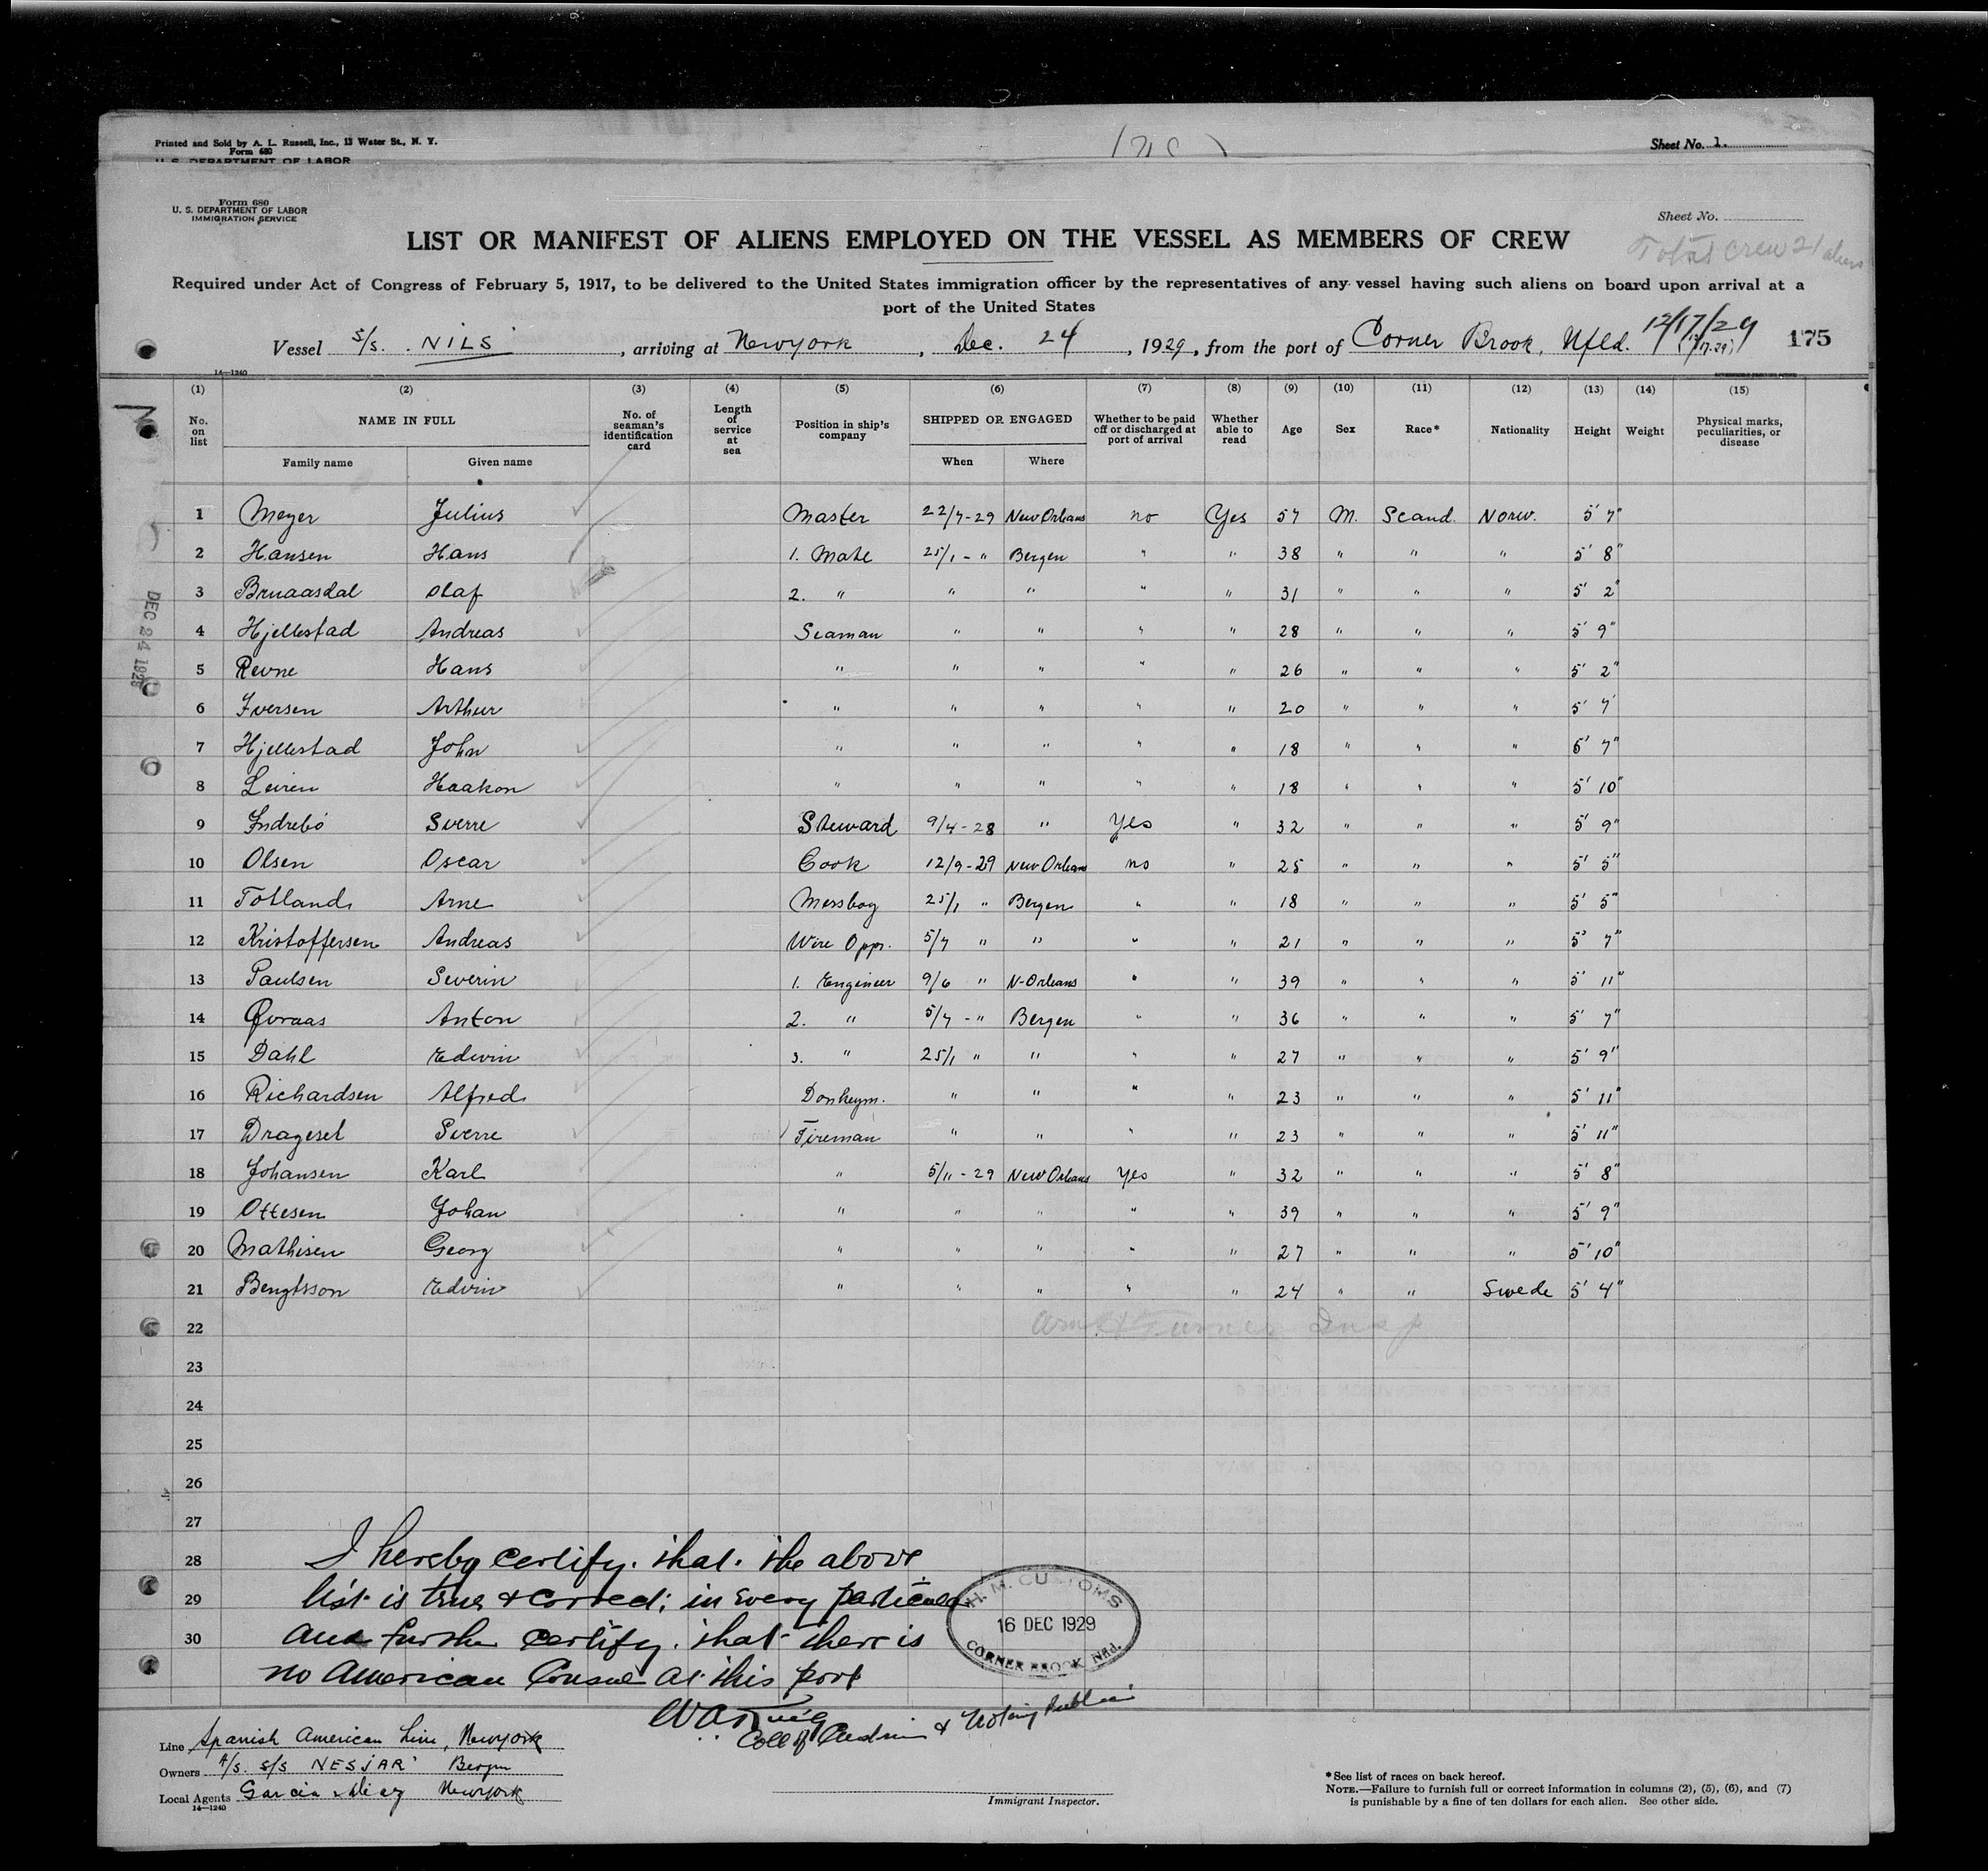 Printed and Sold by A. L. Russell, Inc., 13 Water St., N. Y.
Form 680
U. S. DEPARTMENT OF LABOR
Sheet No. 1.
Form 680
U. S. DEPARTMENT OF LABOR
IMMIGRATION SERVICE
Sheet No.
Total crew 21 aliens
LIST OR MANIFEST OF ALIENS EMPLOYED ON THE VESSEL AS MEMBERS OF CREW
Required under Act of Congress of February 5, 1917, to be delivered to the United States immigration officer by the representatives of any vessel having such aliens on board upon arrival at a
port of the United States
Vessel S/s. NILS, arriving at Newyork, Dec. 24, 1929, from the port of Corner Brook, Nfld. 12/17/29 (12/17-29) 175
14—1240
(1) (2) (3) (4) (5) (6) (7) (8) (9) (10) (11) (12) (13) (14) (15)
No. on list NAME IN FULL No. of seaman's identification card Length of service at sea Position in ship's company SHIPPED OR ENGAGED Whether to be paid off or discharged at port of arrival Whether able to read Age Sex Race* Nationality Height Weight Physical marks, peculiarities, or disease
Family name Given name When Where
1 Meyer Julius Master 22/7-29 New Orleans no Yes 57 M. Scand. Norw. 5' 7"
2 Hansen Hans 1. Mate 25/1 - " Bergen " " 38 " " " 5' 8"
3 Bruaasdal Olaf 2. " " " " " 31 " " " 5' 2"
4 Hjellestad Andreas Seaman " " " " 28 " " " 5' 9"
5 Revne Hans " " " " " 26 " " " 5' 2"
6 Iversen Arthur " " " " " 20 " " " 5' 7'
7 Hjellestad John " " " " " 18 " " " 6' 7"
8 Leiren Haakon " " " " " 18 " " " 5' 10"
9 Indrebö Sverre Steward 9/4-28 " Yes " 32 " " " 5' 9"
10 Olsen Oscar Cook 12/9-29 New Orleans no " 25 " " " 5' 5"
11 Totland Arne Messboy 25/1 " Bergen " " 18 " " " 5' 5"
12 Kristoffersen Andreas Wire Oppr. 5/7 " " " " 21 " " " 5' 7"
13 Paulsen Severin 1. Engineer 9/6 " N-Orleans " " 39 " " " 5' 11"
14 Qvraas Anton 2. " 5/7 - " Bergen " " 36 " " " 5' 7"
15 Dahl Edwin 3. " 25/1 " " " " 27 " " " 5' 9"
16 Richardsen Alfred Donkeym. " " " " 23 " " " 5' 11"
17 Drageset Sverre Fireman " " " " 23 " " " 5' 11"
18 Johansen Karl " 5/11-29 New Orleans Yes " 32 " " " 5' 8"
19 Ottesen Johan " " " " " 39 " " " 5' 9"
20 Mathisen Georg " " " " " 27 " " " 5' 10"
21 Bengtsson Edvin " " " " " 24 " " Swede 5' 4"
22 Turner Insp
23
24
25
26
27
28
29
30
DEC 24 1929
I hereby certify that the above
list is true & correct in every particular
and further certify that there is
no American Consul at this port
H. M. CUSTOMS
16 DEC 1929
CORNER BROOK, Nfld.
Coll of Customs & Notary Public
Line Spanish American Line, Newyork
Owners A/S. S/S NESJAR' Bergen
Local Agents Garcia & Diaz Newyork
14—1240
Immigrant Inspector.
*See list of races on back hereof.
NOTE.—Failure to furnish full or correct information in columns (2), (5), (6), and (7)
is punishable by a fine of ten dollars for each alien. See other side.